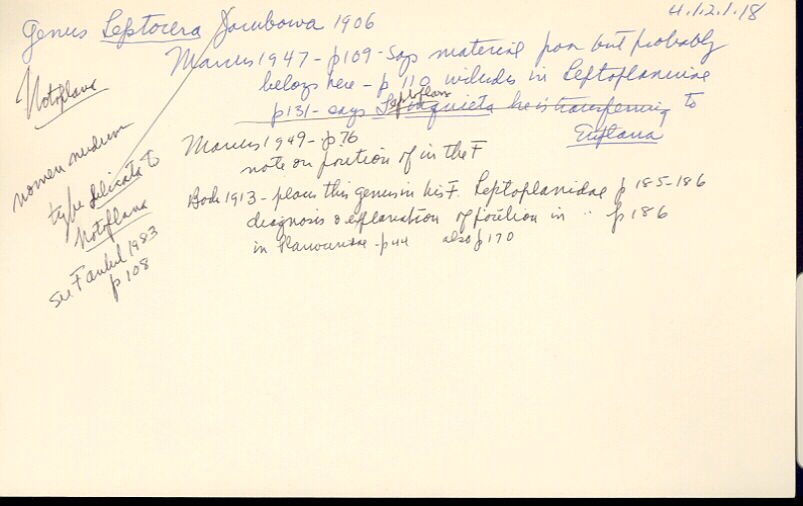 4.1.2.1.18
Genus Leptocera Jacubowa 1906
Marcus 1947 - p109 - says material poor but probably
belongs here - p 110 includes in Leptoplaninae
p131 - says Leptoplana inquieta he is transferring to
Euplana
Marcus 1949 - p. 76
note on position of in the F
Bock 1913 - places this genus in his F. Leptoplanidae p 185-186
diagnosis & explanation of position in " p 186
in Planoceridae - p44 also p 170
Notoplana
nomen nudum
type delicata to
Notoplana
see Faubel 1983
p 108